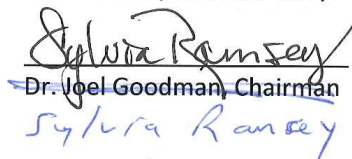 Sylvia Ramsey
Dr. Joel Goodman, Chairman
Sylvia Ramsey